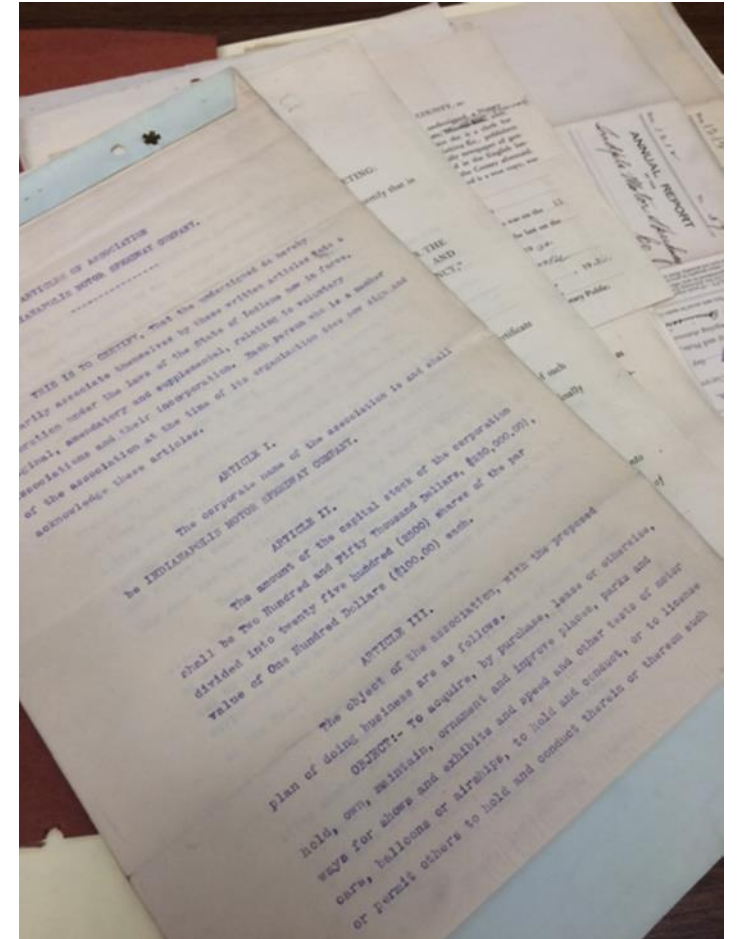 ARTICLES OF ASSOCIATION
INDIANAPOLIS MOTOR SPEEDWAY COMPANY.
THIS IS TO CERTIFY, That the undersigned do hereby
associate themselves by these written articles into a
under the laws of the State of Indiana now in force,
amendatory and supplemental, relating to voluntary
associations and their incorporation. Each person who is a member
of the association at the time of its organization does now sign and
acknowledge these articles.
ARTICLE I.
The corporate name of the association is and shall
be INDIANAPOLIS MOTOR SPEEDWAY COMPANY.
ARTICLE II.
The amount of the capital stock of the corporation
shall be Two Hundred and Fifty Thousand Dollars, $250,000.00),
divided into twenty five hundred (2500) shares of the par
value of One Hundred Dollars ($100.00) each.
ARTICLE III.
The object of the association, with the proposed
plan of doing business are as follows.
OBJECT:- To acquire, by purchase, lease or otherwise,
hold, own, maintain, ornament and improve places, parks and
ways for shows and exhibits and speed and other tests of motor
cars, balloons or airships, to hold and conduct, or to license
or permit others to hold and conduct therein or thereon such
ETING:
certify that in
THE
AND
NCY,"
certificate
of such
into
of
COUNTY, ss:
in the English
the County aforesaid,
was on the 12
19
ary Public.
No. 1212
ANNUAL REPORT
OF THE